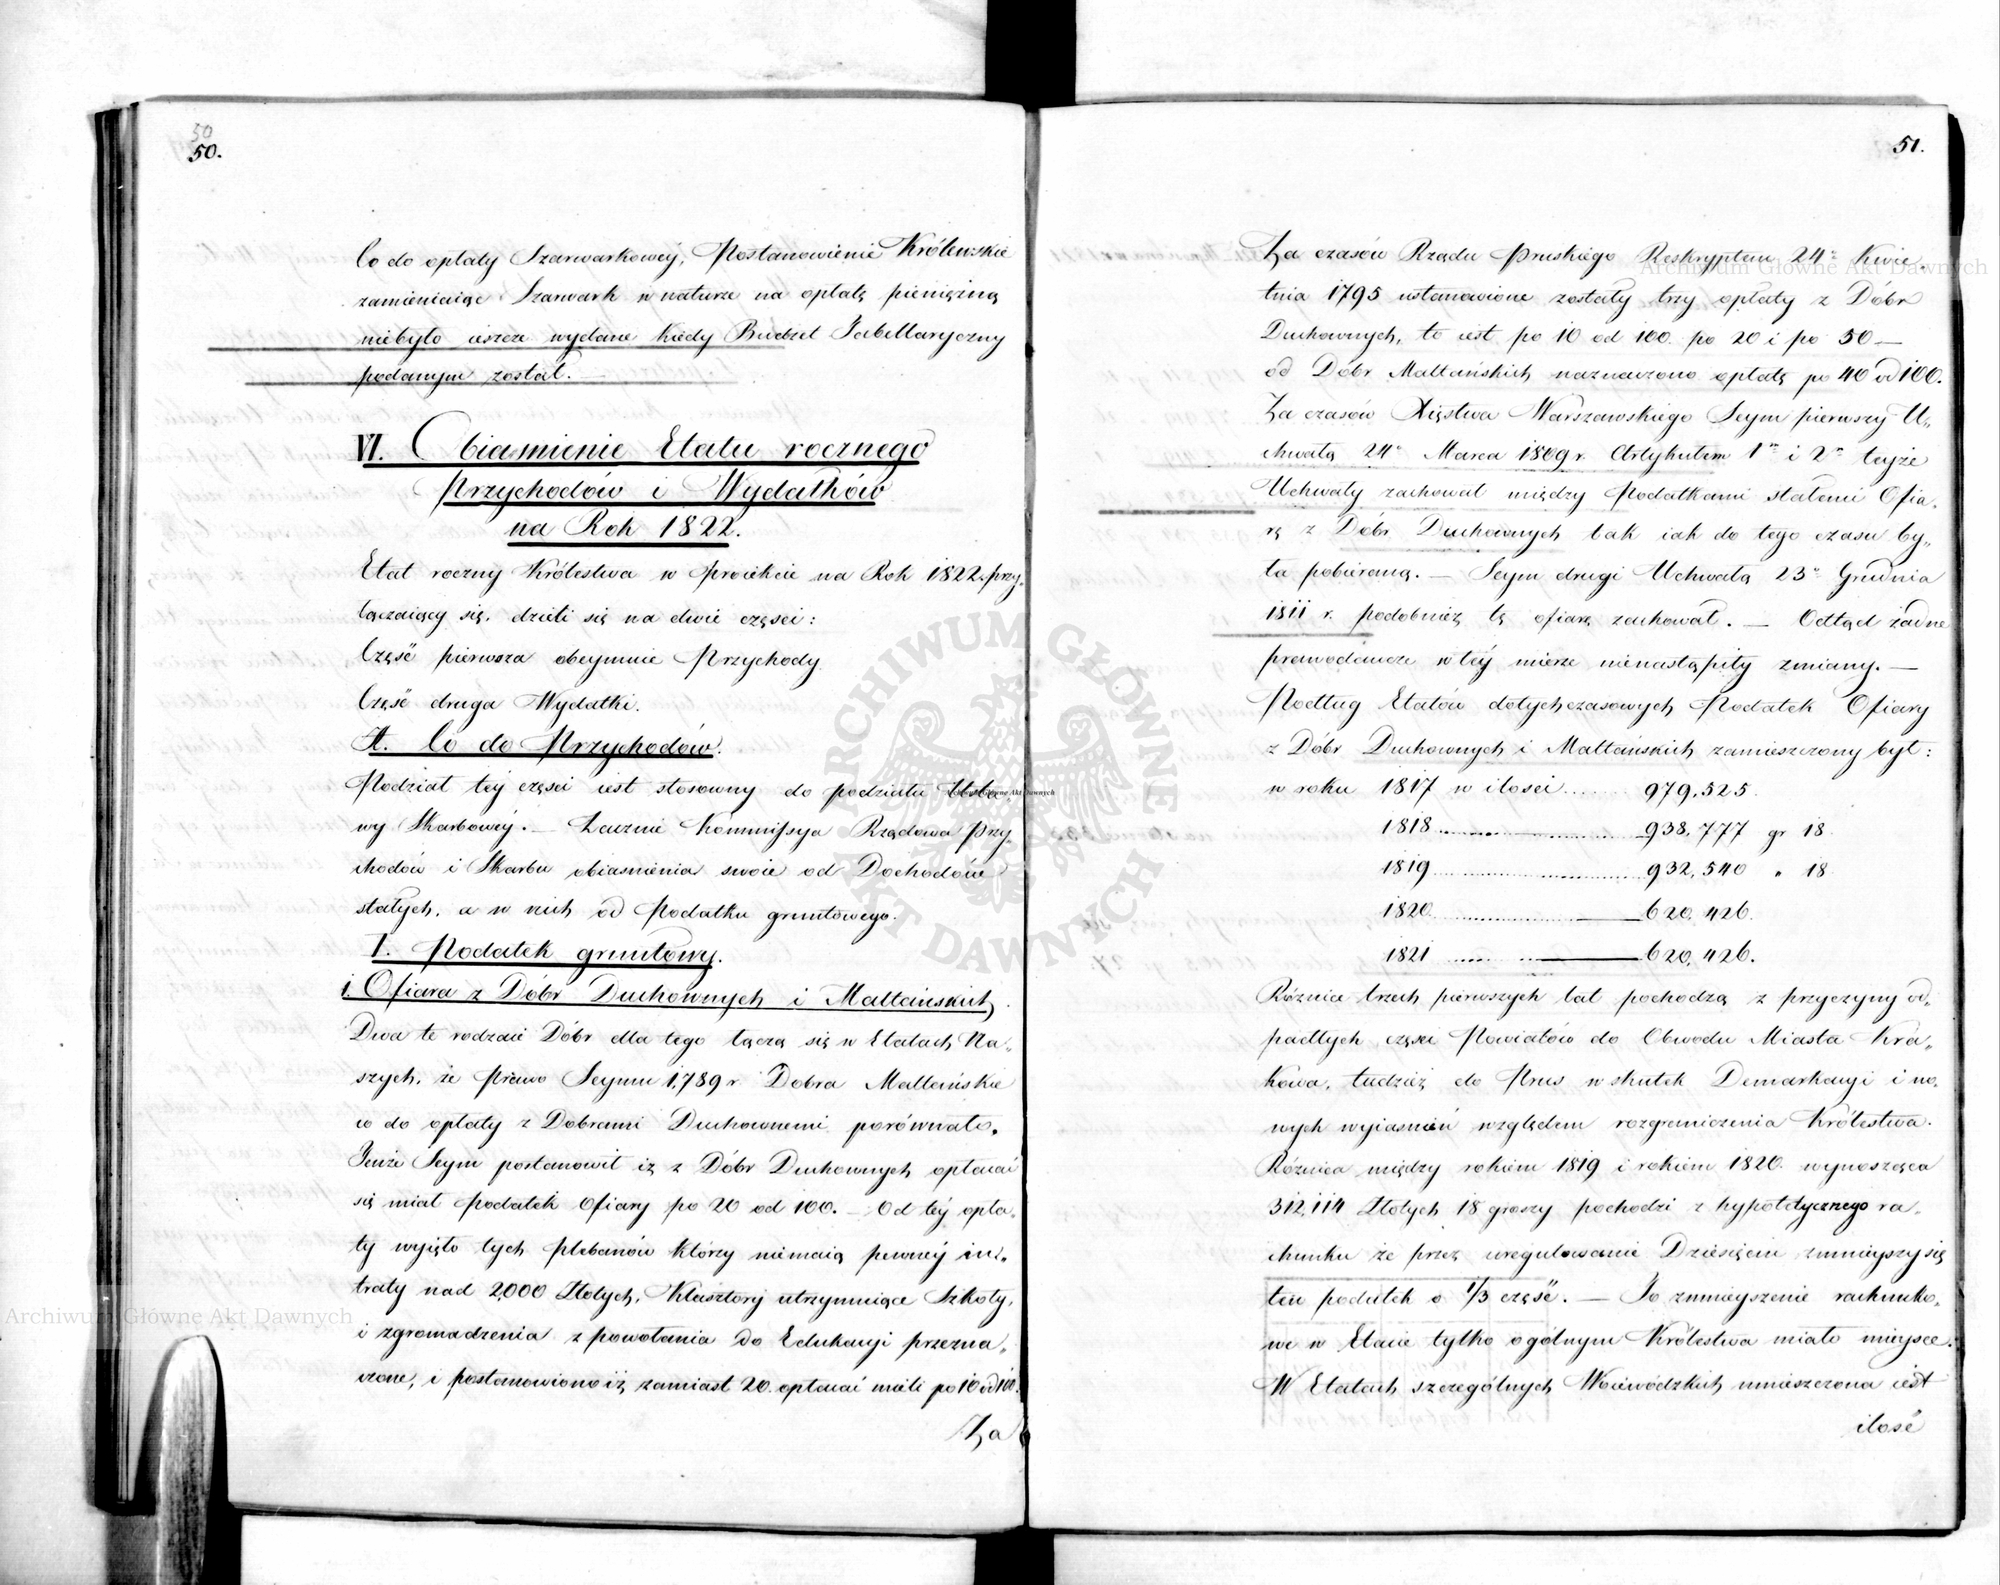 50
50.
Co do opłaty Szarwarkowéy, Postanowienie Królewskie
zamieniaiąc Szarwark w naturze na opłatę pieniężną
niebyło ieszcze wydane kiedy Budżet Tabellaryczny
podanym został.
VI. Obiasnienie Etatu rocznego
Przychodów i Wydatków
na Rok 1822.
Etat roczny Królestwa w proiekcie na Rok 1822. przy„
łączaiący się, dzieli się na dwie części:
Część pierwsza obeymuie Przychody.
Część druga Wydatki.
A. Co do Przychodów.
Podział téy części iest stosowny do podziału Usta„
wy Skarbowéy. — Zacznie Kommissya Rządowa Przy„
chodów i Skarbu obiasnienia swoie od Dochodów
stałych, a w nich od Podatku gruntowego.
I. Podatek gruntowy.
1. Ofiara z Dóbr Duchownych i Maltańskich.
Dwa te rodzaie Dóbr dla tego łączą się w Etatach Na„
szych, że Prawo Seymu 1789 r. Dobra Maltańskie
co do opłaty z Dobrami Duchownemi porównało.
Tenże Seym postanowił iż z Dóbr Duchownych opłacać
się miał podatek Ofiary po 20 od 100. — Od téy opła„
ty wyięto tych plebanów którzy niemaią pewnéy in„
traty nad 2,000 Złotych, Klasztory utrzymuiące Szkoły,
i zgromadzenia z powołania do Edukacyi przezna„
czone, i postanowiono iż zamiast 20. opłacać mieli po 10 od 100.
Za
51.
Za czasów Rządu Pruskiego Reskryptem 24º Kwie„
tnia 1795 ustanowione zostały trzy opłaty z Dóbr
Duchownych, to iest po 10 od 100 po 20 i po 50 —
od Dóbr Maltańskich naznaczono opłatę po 40 od 100.
Za czasów Xięstwa Warszawskiego Seym pierwszy U„
chwałą 24º Marca 1809 r. Artykułem 1m i 2m teyże
Uchwały zachował między Podatkami stałemi Ofia„
rę z Dóbr Duchownych tak iak do tego czasu by„
ła pobieraną. — Seym drugi Uchwałą 23º Grudnia
1811 r. podobnież tę ofiarę zachował. — Odtąd żadne
prawodawcze w téy mierze nienastąpiły zmiany. —
Podług Etatów dotychczasowych Podatek Ofiary
z Dóbr Duchownych i Maltańskich zamieszczony był:
w roku 1817 w ilości ....... 979,525.
1818 ............ 938,777 gr 18
1819 ............ 932,540 „ 18
1820 ............ 620,426.
1821 ............ 620,426.
Różnica trzech pierwszych lat pochodzą z przyczyny od„
padłych części Powiatów do Obwodu Miasta Kra„
kowa, tudzież do Prus w skutek Demarkacyi i no„
wych wyiaśnień względem rozgraniczenia Królestwa.
Różnica między rokiem 1819 i rokiem 1820. wynosząca
312,114 Złotych 18 groszy pochodzi z hypotetycznego ra„
chunku że przez uregulowanie Dziesięcin zmnieyszy się
ten podatek o 1/3 część. — To zmnieyszenie rachunko„
we w Etacie tylko ogólnym Królestwa miało mieysce.
W Etatach szczególnych Woiewódzkich umieszczona iest
ilość
Archiwum Główne Akt Dawnych
Archiwum Główne Akt Dawnych
Archiwum Główne Akt Dawnych
ARCHIWUM GŁÓWNE AKT DAWNYCH